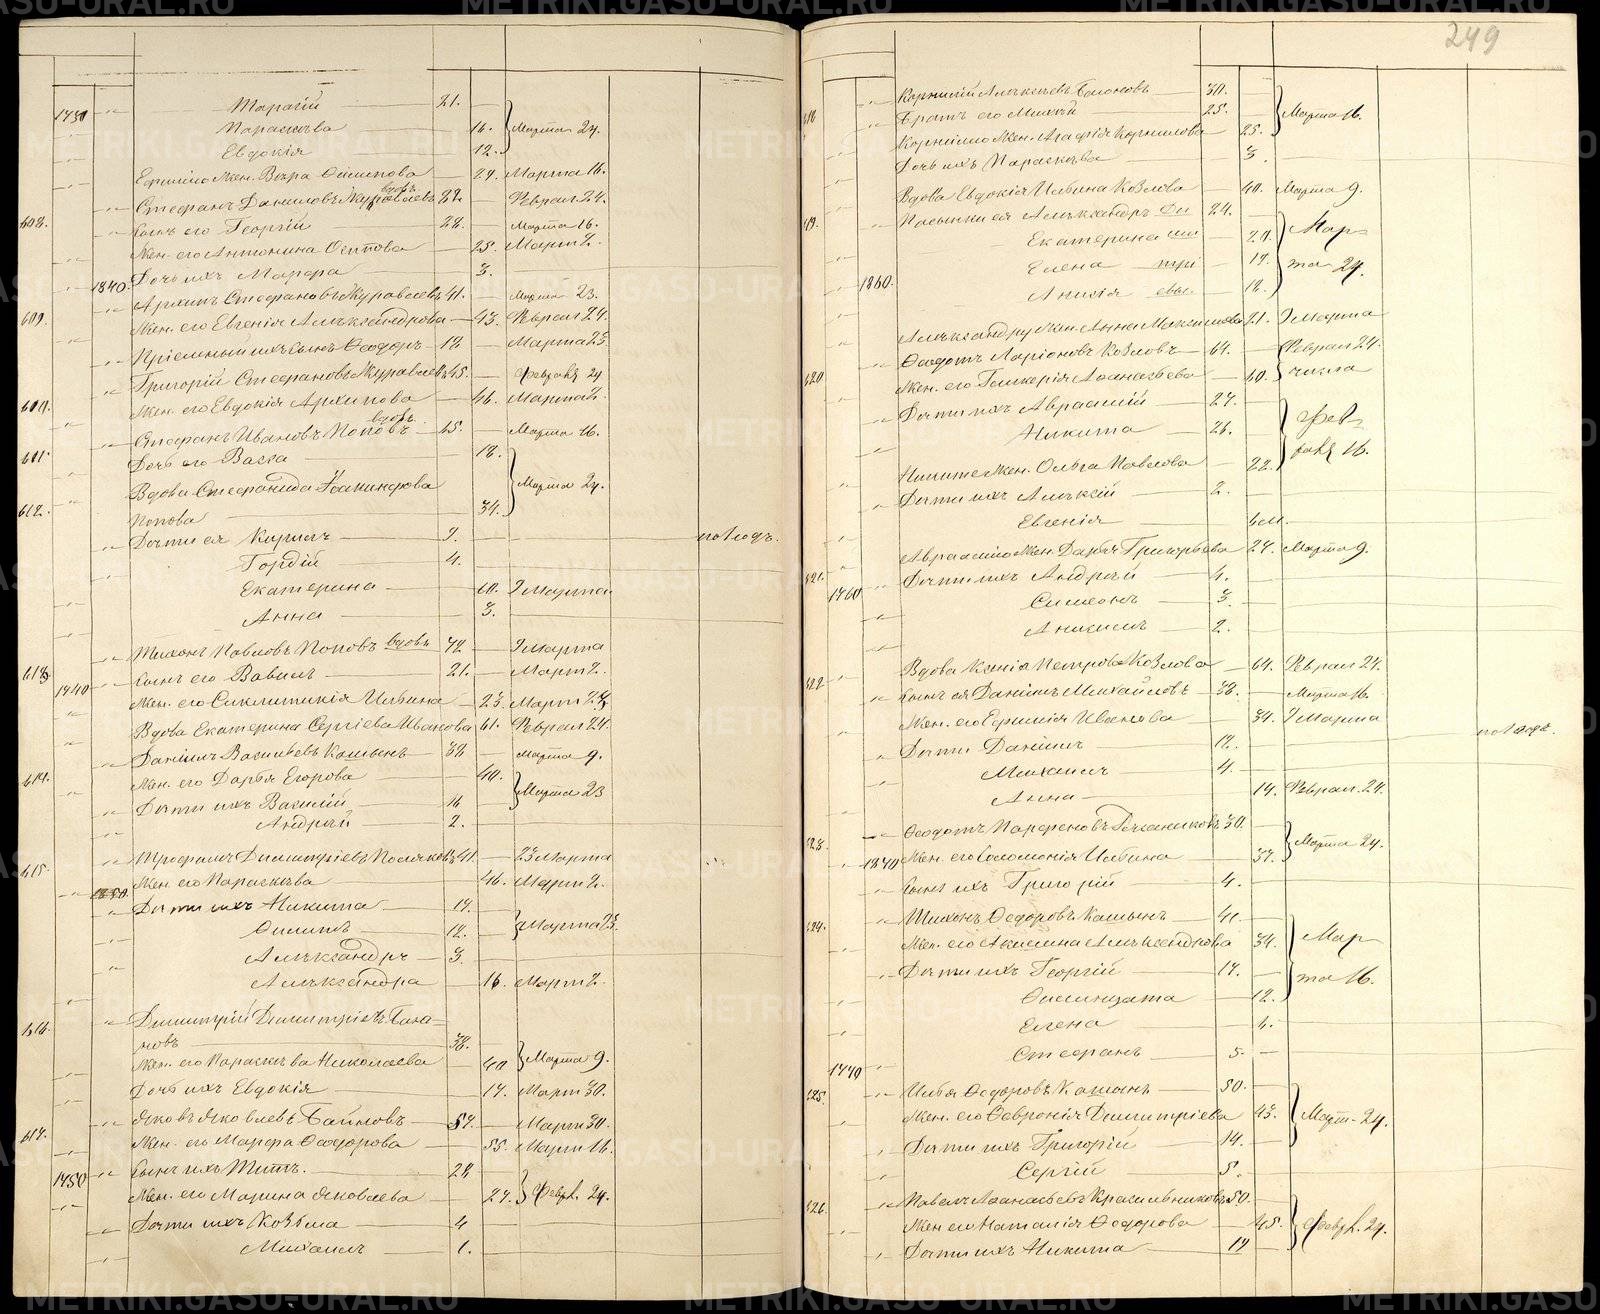 249
1730
Тарасій 21.
Параскѣва 16.
Марта 24.
Евдокія 12.
Ефимію Жен. Вѣра Филипова 29. Марта 16.
608. Стефанъ Даниловъ Журавлевъ вдовъ 82. Феврал. 24.
Сынъ его Георгій 28. Марта 16.
Жен. его Антонина Осипова 25. Март 2.
1840. Дочь ихъ Марфа 3.
609. Архипъ Стефановъ Журавлевъ 41. Марта 23.
Жен. его Евгенія Алѣксандрова 43. Феврал 24.
Пріемный ихъ сынъ Ѳеодоръ 12 Марта 23
Григорій Стефановъ Журавлевъ 45. Февраля 24
Жен. его Евдокія Архипова 46. Марта 2.
Стефанъ Ивановъ Поповъ вдовъ 65. Марта 16.
611. Дочь его Васса 18.
Вдова Стефанида
Марта 24.
612. Попова 34.
Дѣти ея Кирилъ 9. по 1 годъ.
Гордій 4.
Екатерина 10. 9 Марта.
Анна 3.
613 Тихонъ Павловъ Поповъ вдовъ 72 9 Марта
Сынъ его Вавилъ 21. Март 2.
1740 Жен. его Сиклитикія Ильина 23. Март 24.
Вдова Екатерина Сергіева Иванова 61. Феврал 24.
614. Даніилъ Васильевъ Камынъ 38 Марта 9.
Жен. его Дарья Егорова 40.
Марта 23
Дѣти ихъ Василій 16
Андрей 2.
615. Трофимъ Димитріевъ Поляковъ 41. 23 Марта
Жен его Параскѣва 46. Март 2.
1850 Дѣти ихъ Никита 19.
Филипъ 12. Марта 23.
Алѣксандръ 3.
Алѣксандра 16 Март 2.
616. Димитрій Димитріевъ Бала=
новъ 38.
Жен. его Параскѣва Николаева 40 Марта 9.
Дочь ихъ Евдокія 17. Март 30.
617. Яковъ Яковлевъ 57. Март 30.
Жен. его Марфа Ѳеодорова 55. Март 16.
1750 Сынъ ихъ Титъ. 28
Жен. его Марина Яковлева 27. Февр. 24.
Дѣти ихъ Козьма 4
Михаилъ 1.
Корнилій Алѣксѣевъ 30.
618 Братъ его Михѣй 25. Марта 16.
Корнилію Жен. Агафія Корнилова 25.
Дочь ихъ Параскѣва 3.
Вдова Евдокія Ильина Козлова 40. Марта 9.
619. Пасынки ея Алѣксандръ 24.
Екатерина 20. Мар
Елена 17. та 24.
1860. Анисія 12.
Алѣксандру Жен. Анна Максимова 21. 9 Марта
620 Ѳеодотъ Ларіоновъ Козловъ 64. Феврал 24.
Жен. его Гликерія Аѳанасьева 60. числа
Дѣти ихъ Авраамій 27. Фев
Никита 26. раля 16.
Никите Жен. Ольга Павлова 22.
Дѣти ихъ Алѣксѣй 2.
Евгенія 6 м.
Авраамію Жен. Дарья Григорьева 27. Марта 9.
621. Дѣти ихъ Андрей 4.
1760 Симеонъ 3.
Аникій 2.
Вдова Ксенія Петрова Козлова 64. Феврал 24.
622 Сынъ ея Даніилъ Михайловъ 38. Марта 16.
Жен. его Ефимія Иванова 34. 9 Марта
Дѣти Даніилъ 12. по 1 годъ.
Михаилъ 4.
Анна 14. Феврал. 24.
623. Ѳеодотъ Парфеновъ 30.
1870 Жен. его Соломонія Ильина 37. Марта 24.
Сынъ ихъ Григорій 4.
624. Тихонъ Ѳеодоровъ Камынъ 41.
Жен. его Акилина Алѣксандрова 34. Мар
Дѣти ихъ Георгій 17. та 16.
Филицата 12.
Елена 6.
Стефанъ 5.
1770
625. Илья Ѳеодоровъ Камынъ 50.
Жен. его Ѳевронія Димитріева 43. Март. 24.
Дѣти ихъ Григорій 14.
Сергій 5.
626. Павелъ Аѳанасьевъ Красильниковъ 50.
Жен его Наталія Ѳеодорова 45. Февр. 24.
Дѣти ихъ Никита 19
METRIKI.GASO-URAL.RU